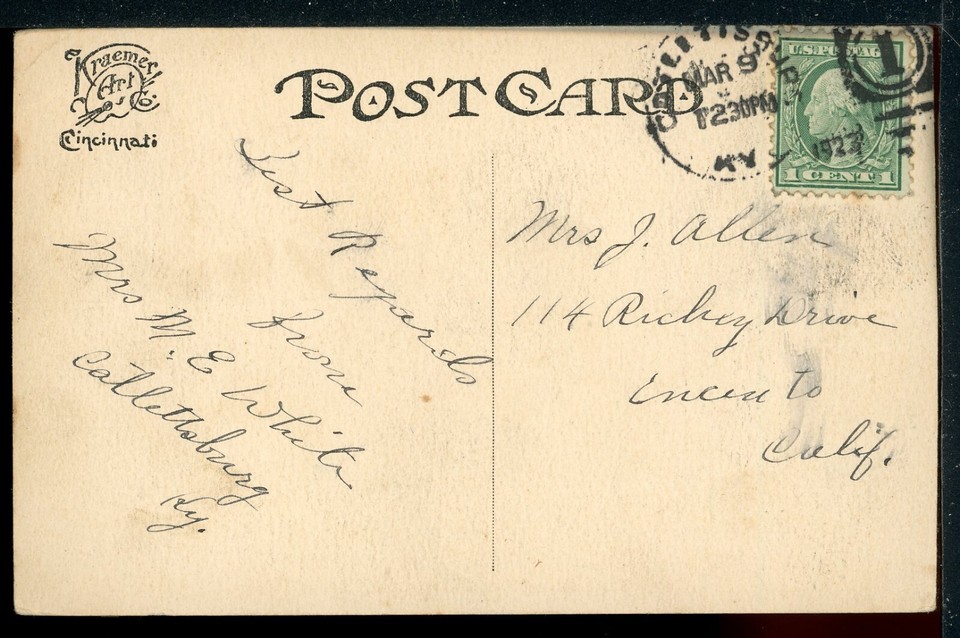 Kraemer
Art
Co.
Cincinnati
POST CARD
MAR 9
12 30 PM
1923
KY
U.S. POSTAGE
1 CENT 1
1
Just Regards
from
Mrs M. E White
Catlettsburg
Ky.
Mrs J. Allen
114 Richey Drive
Calif.